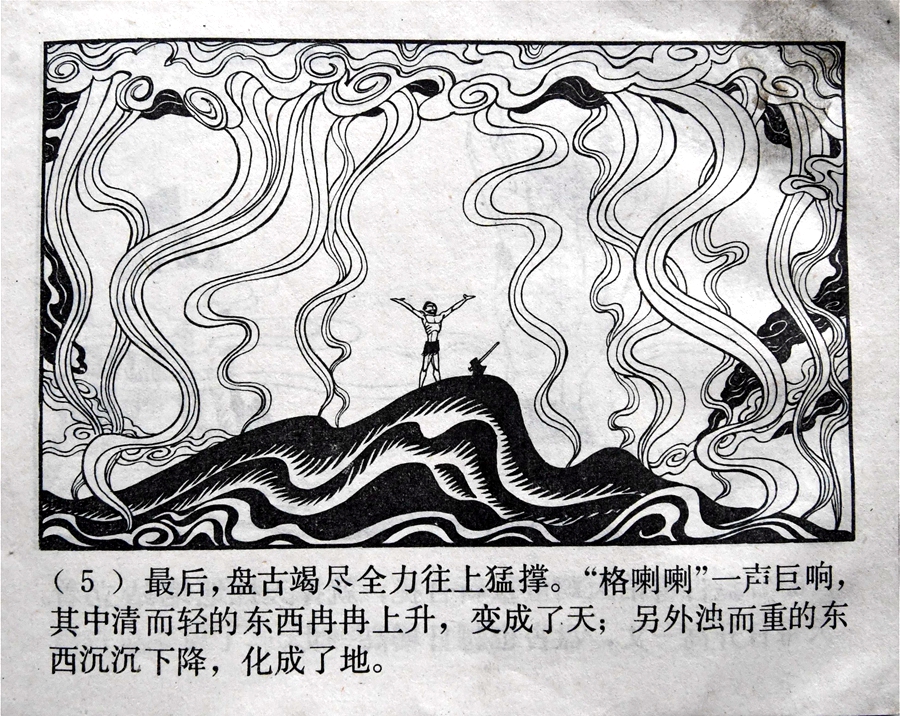 （5）最后，盘古竭尽全力往上猛撑。“格喇喇”一声巨响，
其中清而轻的东西冉冉上升，变成了天；另外浊而重的东
西沉沉下降，化成了地。